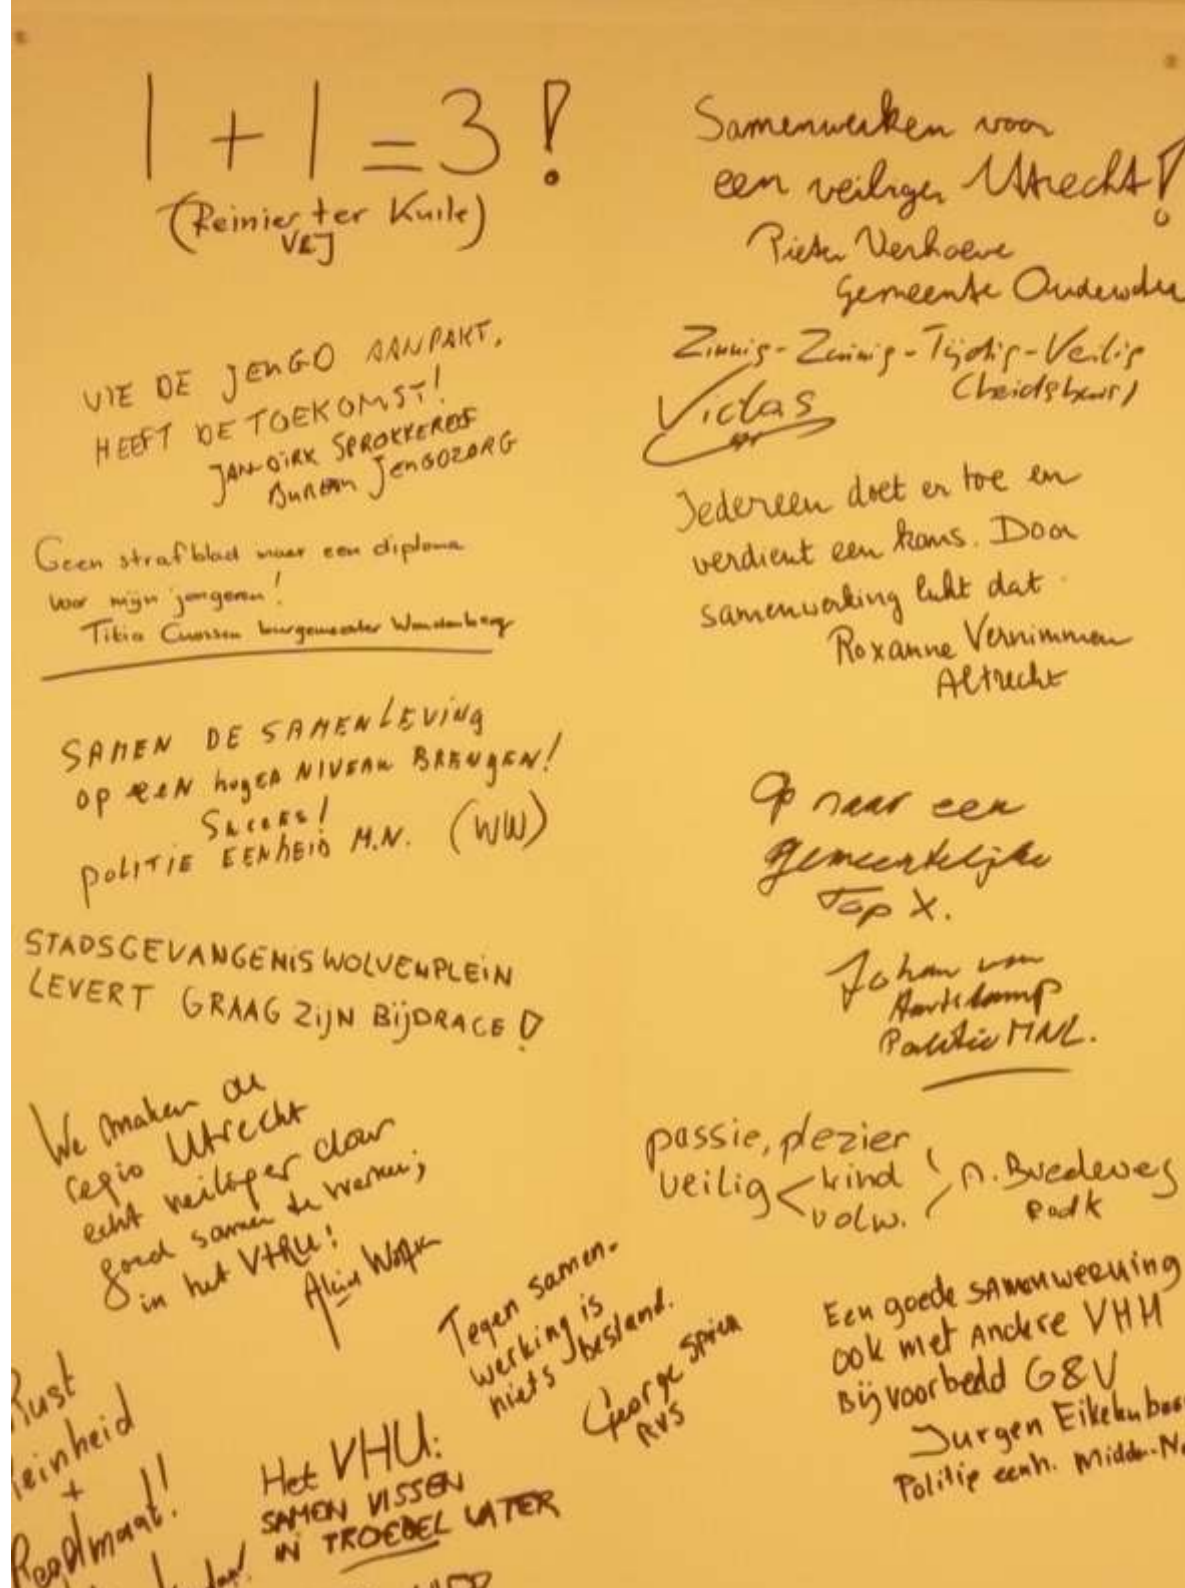 1 + 1 = 3!
(Reinier ter Kuile)
VRJ
WIE DE JEUGD AANPAKT,
HEEFT DE TOEKOMST!
JAN-DIRK SPROKKEREEF
BUREAU JEUGDZORG
Geen strafblad maar een diploma
voor mijn jongeren!
burgemeester Woudenberg
SAMEN DE SAMENLEVING
OP EEN hoger NIVEAU BRENGEN!
Succes!
POLITIE EENHEID M.N. (WW)
STADSGEVANGENIS WOLVENPLEIN
LEVERT GRAAG ZIJN BIJDRAGE!
We maken de
regio Utrecht
echt veiliger door
goed samen te werken;
in het VHRU!
Rust
Reinheid
+
Regelmaat!!
Het VHU:
SAMEN VISSEN
IN TROEBEL WATER
Tegen samen-
werking is
niets bestand.
George
RVS
Samenwerken voor
een veiliger Utrecht!
Pieter Verhoeve
Gemeente Oudewater
Zinnig-Zuinig-Tijdig-Veilig
Victas
Iedereen doet er toe en
verdient een kans. Door
samenwerking lukt dat
Roxanne Vernimmen
Altrecht
Op naar een
gemeentelijke
Top X.
Johan van
Politie MNL.
passie, plezier
veilig < kind
volw. ! n. Bredewes
Een goede samenwerking
ook met Andere VHH
Bijvoorbeeld G&V
Jurgen
Politie eenh. Midden-N